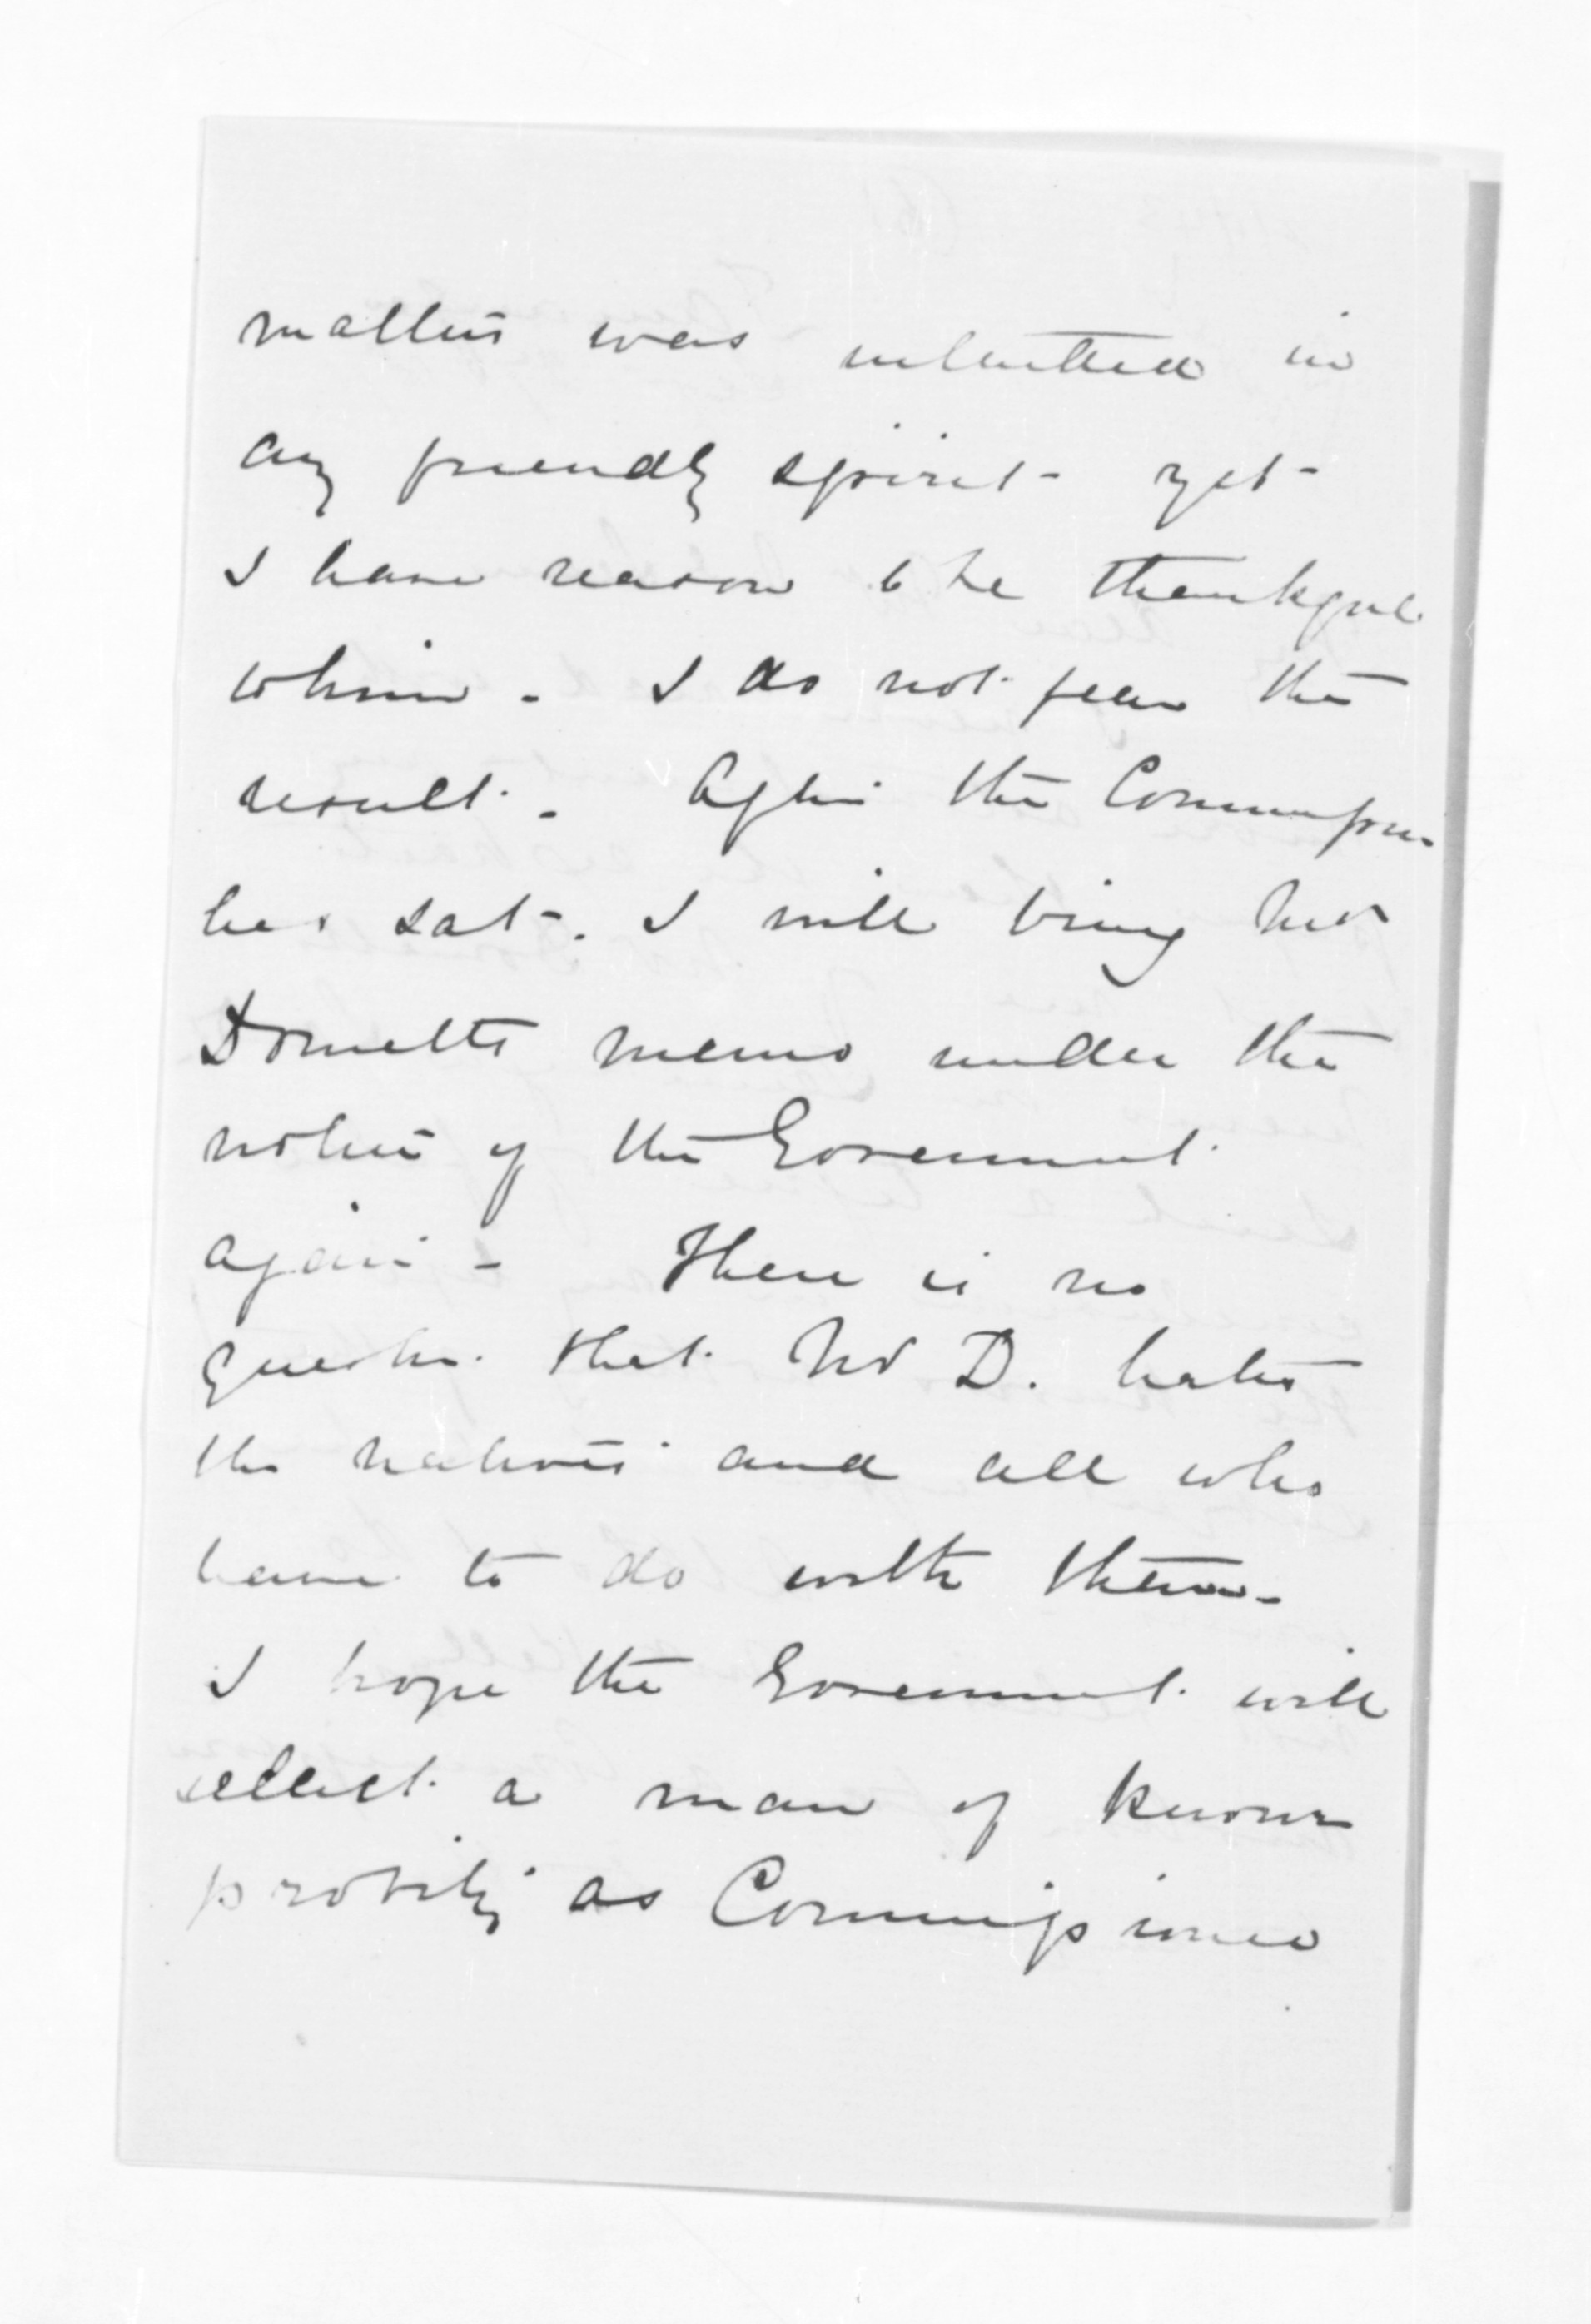 matters was submitted in
any friendly spirit - yet -
I have reason to be thankful
to him - I do not fear the
result. - After the Commission
has sat -. I will bring Mr
Domett's memo under the
notice of the Government
again - There is no
question that Mr D. hates
the natives and all who
have to do with them -
I hope the Government will
select a man of known
probity as Commissioner